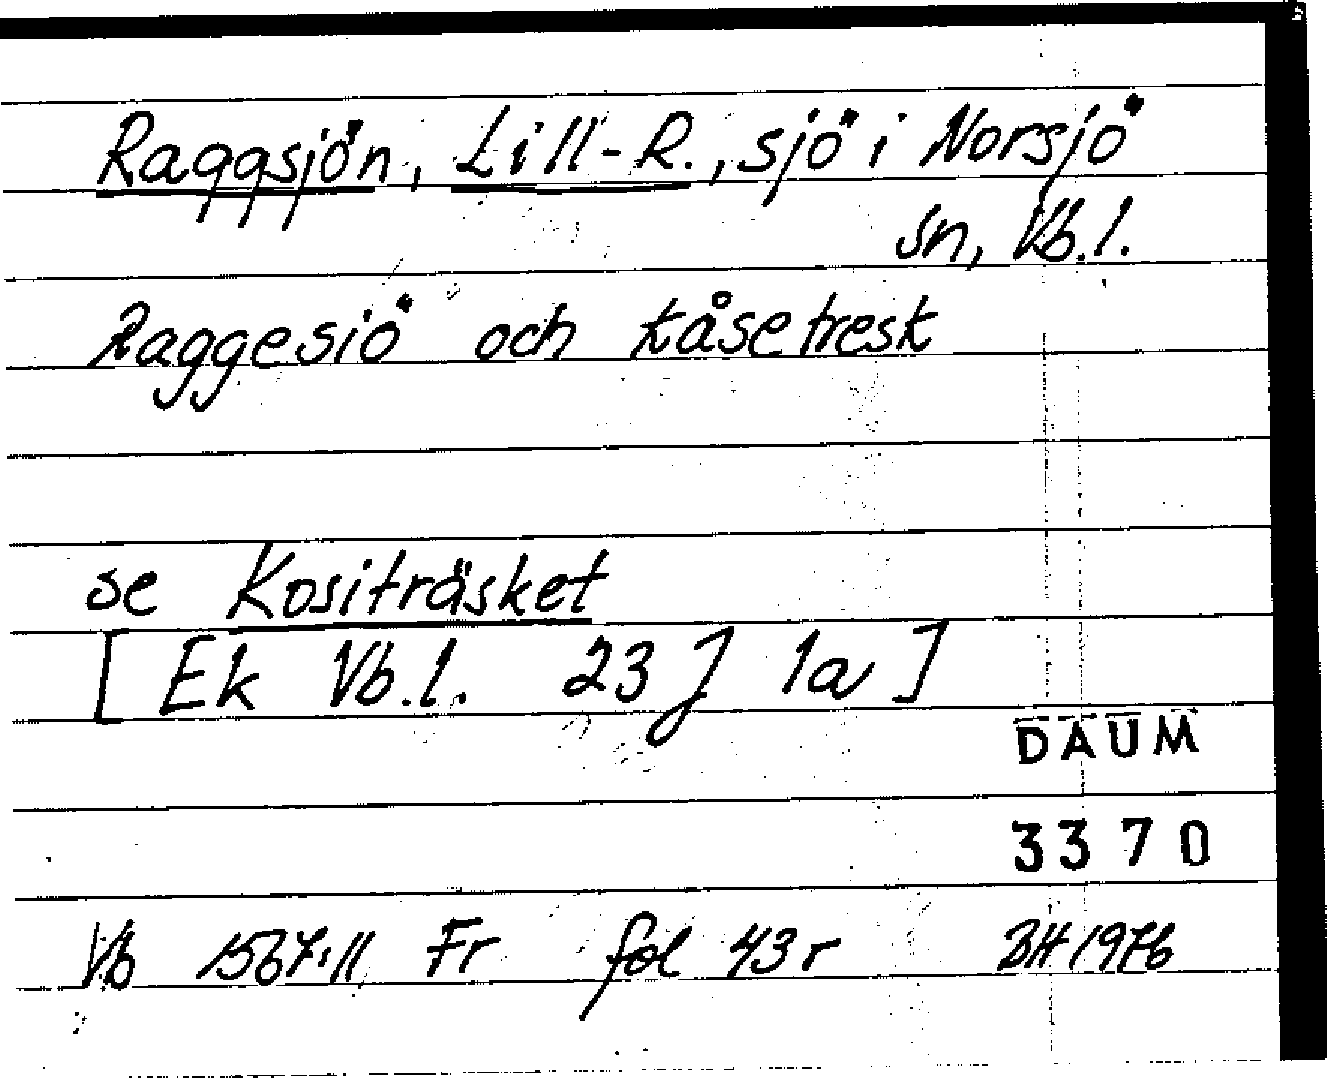 Raggsjön, Lill-R., sjö i Norsjö
sn, Vb.l.
Raggesiö och kåsetresk
se Kositräsket
[Ek Vb.l. 23J 1a]
DAUM
3370
Vb 1567:11 Fr fol 43r BH 1976